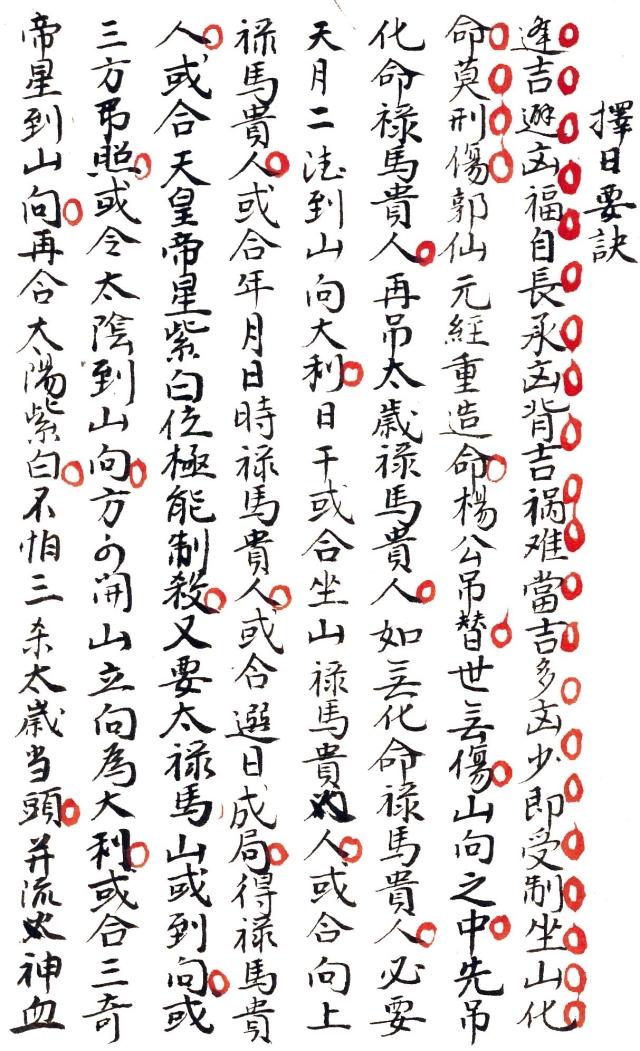 擇日要訣
逢吉避凶福自長承凶背吉祸难當吉多凶少即受制坐山化
命莫刑傷郭仙元經重造命楊公吊替世無傷山向之中先吊
化命禄馬貴人再吊太歲禄馬貴人如無化命禄馬貴人必要
天月二德到山向大利日干或合坐山禄馬貴人或合向上
禄馬貴人或合年月日時禄馬貴人或合選日成局得禄馬貴
人或合天皇帝星紫白位極能制殺又要太禄馬山或到向或
三方吊照或合太陰到山向方可開山立向為大利或合三奇
帝星到山向再合太陽紫白不怕三杀太歲当頭并流太神血